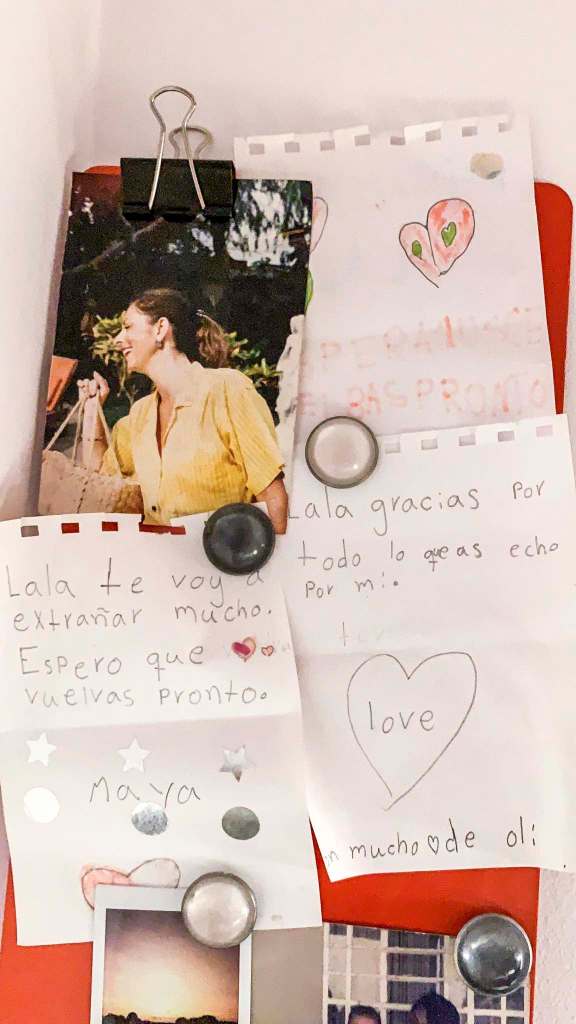 PRONTO
Lala gracias por
todo lo que as echo
por mi.
love
mucho de oli
Lala te voy a
extrañar mucho.
Espero que
vuelvas pronto.
Maya